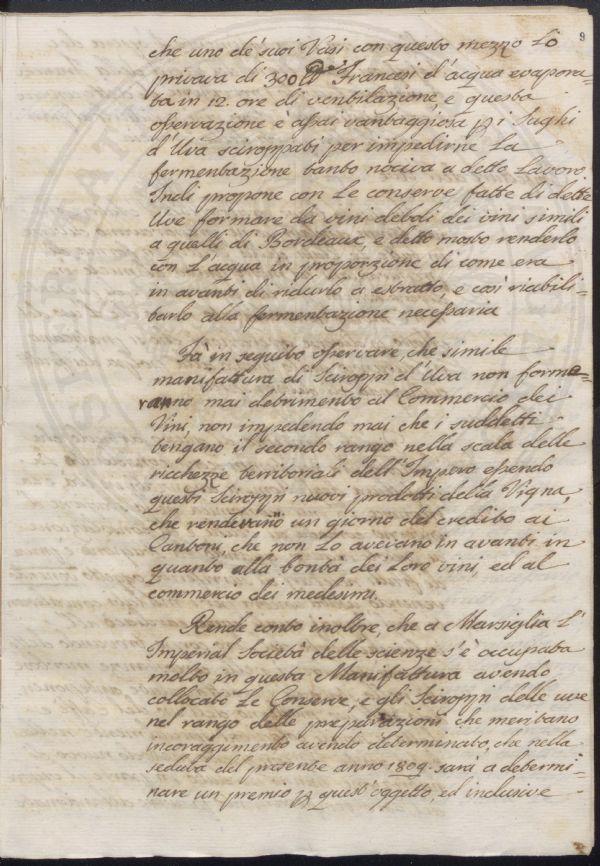 9
che uno de' suoi Vasi con questo mezzo Lo
privava di 300 ℔ Francesi d'acqua evapora=
ta in 12. ore di ventilazione, e questa
osservazione è assai vantaggiosa p i Sughi
d'Uva sciroppati per impedirne La
fermentazione tanto nociva a detto Lavoro.
Indi propone con Le conserve fatte di dette
Uve formare da vini deboli dei vini simili
a quelli di Bordeaux, e detto mosto renderlo
con L'acqua in proporzione di come era
in avanti di ridurlo a estratto, e così riabili=
tarlo alla fermentazione necessaria
Fà in seguito osservare, che simile
manifattura di Sciroppi d'Uva non forme=
ranno mai detrimento al Commercio dei
Vini, non impedendo mai che i suddetti
tengano il secondo rango nella scala delle
ricchezze territoriali dell'Impero essendo
questi Sciroppi nuovi prodotti della Vigna,
che renderanno un giorno del credito ai
Cantoni, che non Lo aveiano in avanti in
quanto alla bontà dei Loro vini, ed al
commercio dei medesimi.
Rende conto inoltre, che a Marsiglia L'
Imperial Società delle scienze s'è occupata
molto in questa Manifattura avendo
collocato Le Conserve, e gli Sciroppi delle uve
nel rango delle preparazioni che meritano
incoraggimento avendo determinato, che nella
seduta del presente anno 1809. sarà a determi=
nare un premio p quest'oggetto, ed inclusive